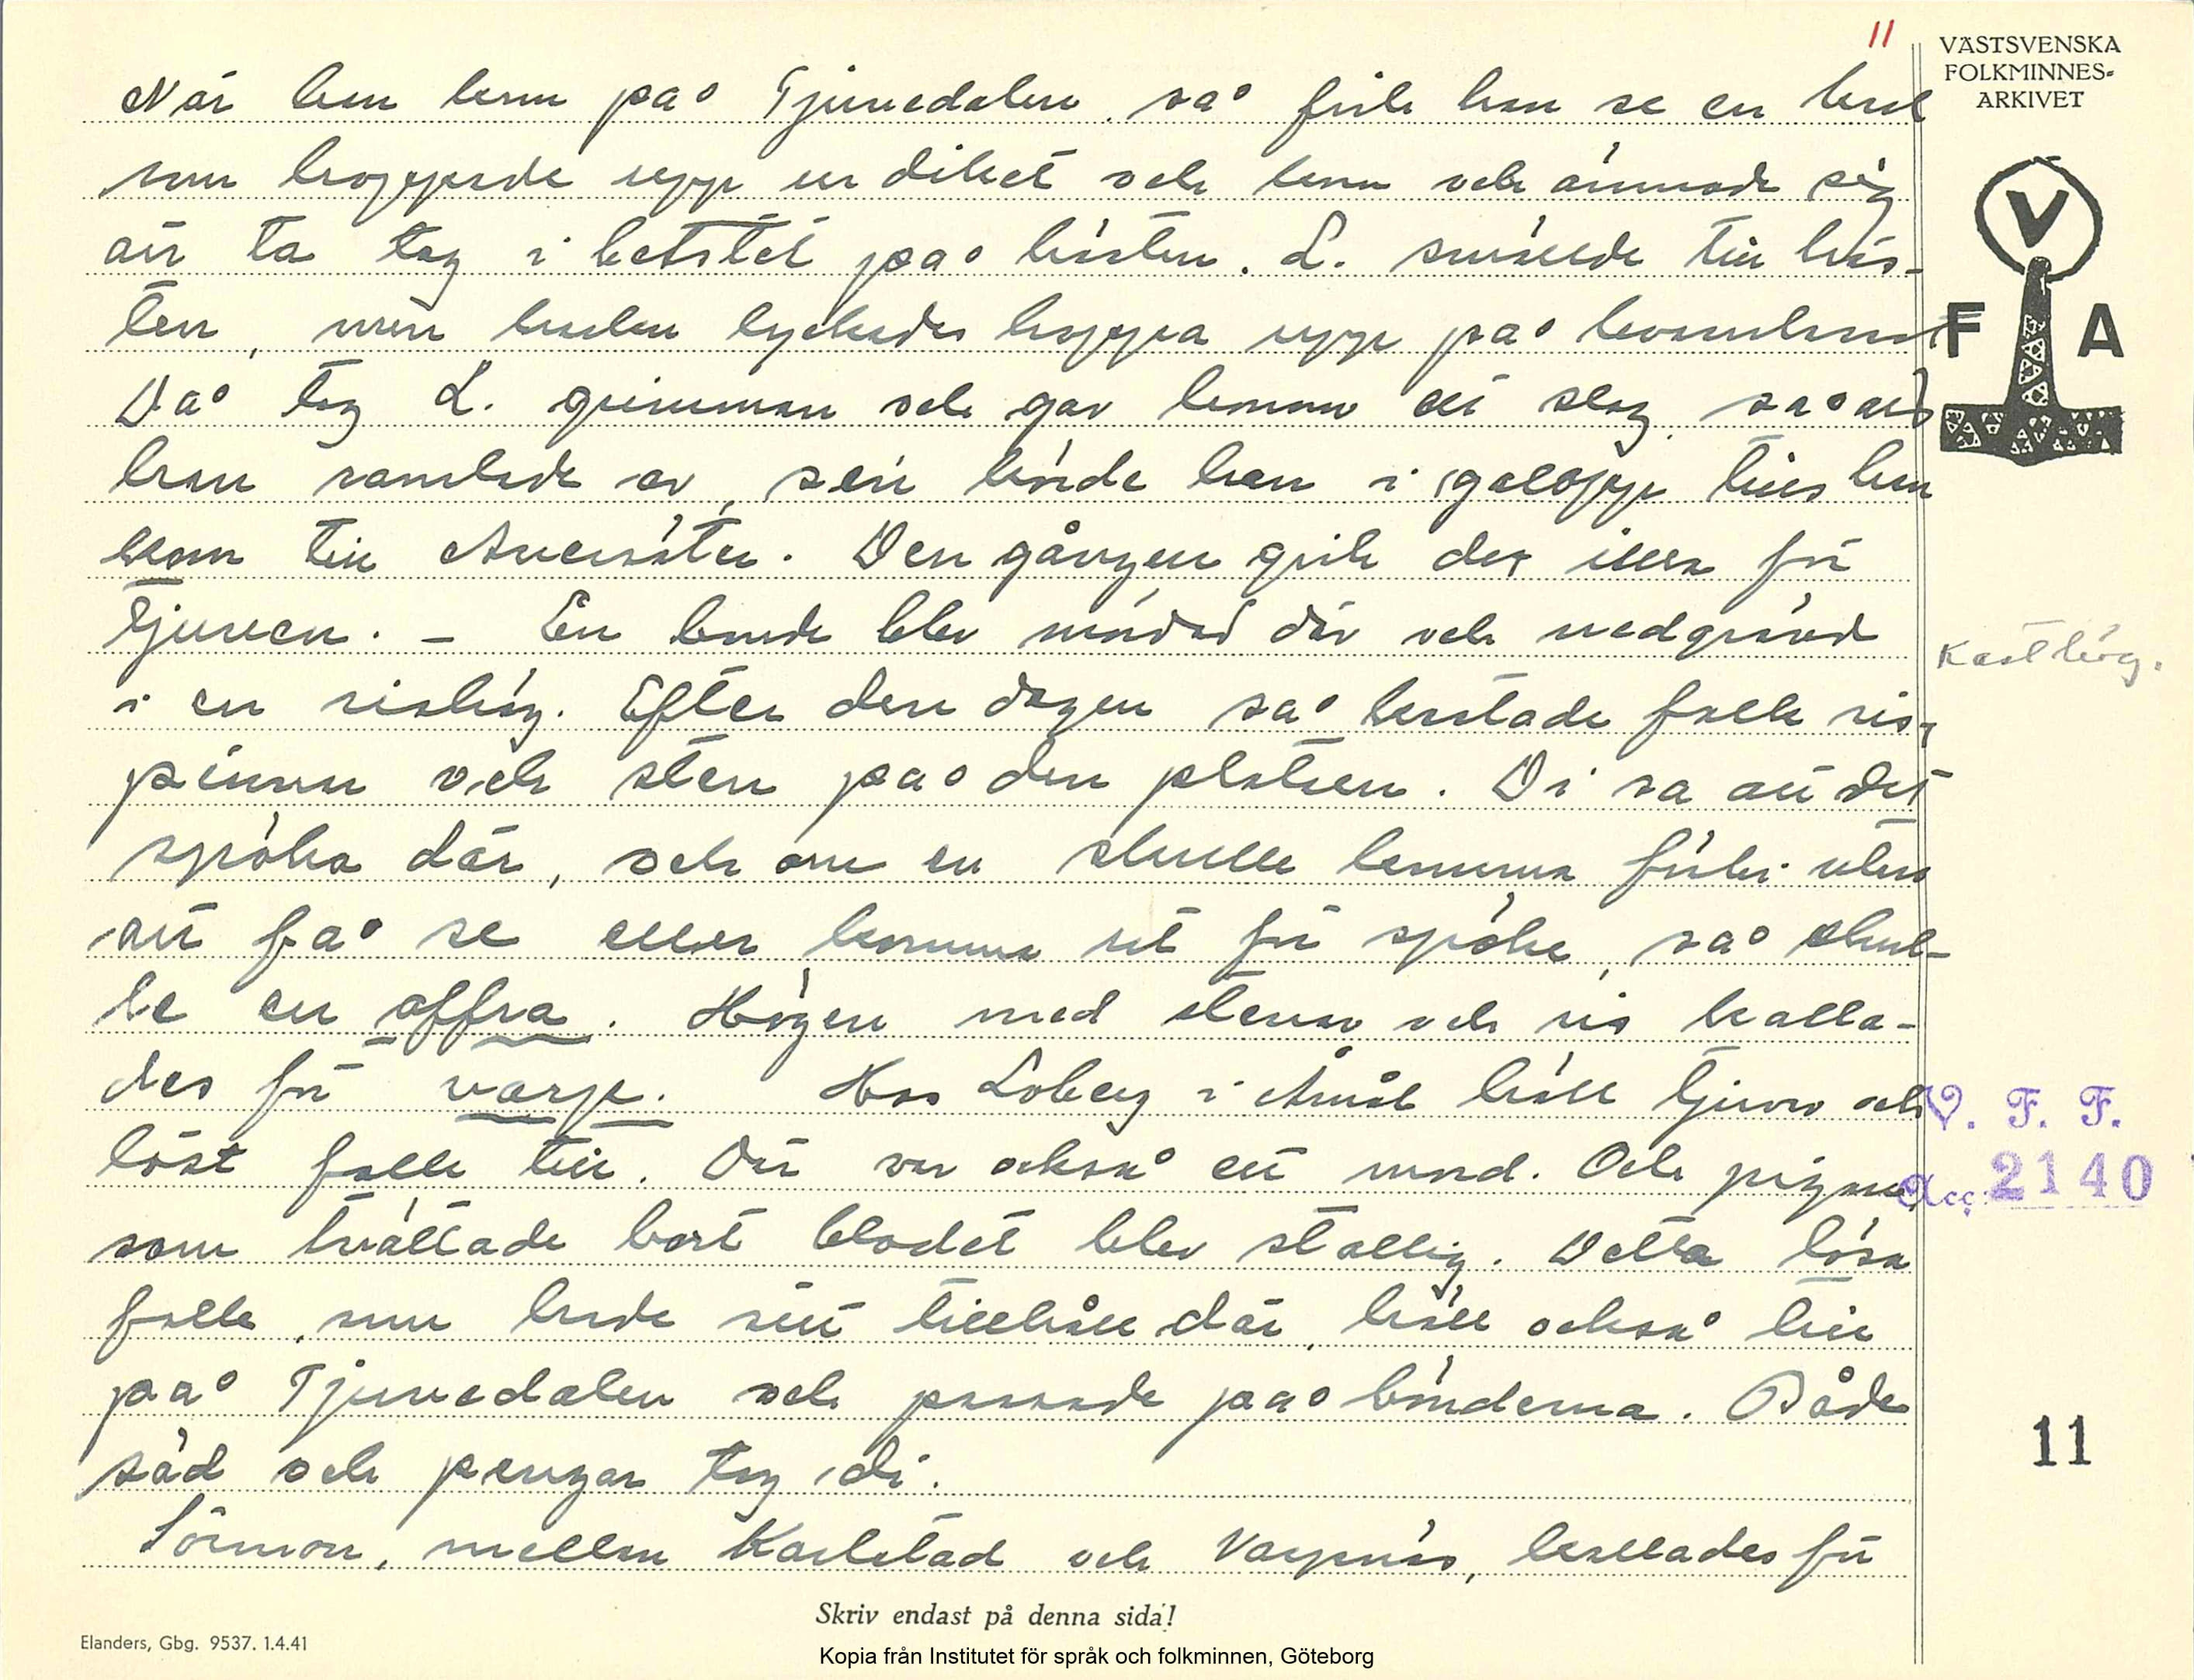 11
VÄSTSVENSKA
FOLKMINNES-
ARKIVET
När han kom på Tjuvedalen så fick han se en karl
som hoppade upp ur diket och kom och ämnade sig
att ta tag i betslet på hästen. L. smällde till häs-
ten, men karlen lyckades hoppa upp på
Då tog L. grimman och gav honom ett slag så att
han ramlade av, sen körde han i galopp tills han
kom till Årsäter. Den gången gick det illa för
tjuven. - En bonde blev mördad där och nedgrävd
i en rishög. Efter den dagen så kastade folk ris,
pinnar och sten på den platsen. Di sa att det
spöka där, och om en skulle komma förbi utan
att få se eller komma ut för spöke, så skul-
le en offra. Högen med stenar och ris kalla-
des för varp. Hos Loberg i Åmål höll tjuvar och
löst folk till. Där var också ett mord. Och pigan,
som tvättade bort blodet blev stollig. Detta lösa
folk, som hade sitt tillhåll där, höll också till
på Tjuvedalen och passade på bönderna. Både
säd och pengar tog di.
Sörmon, mellan Karlstad och Varpnäs, kallades för
V
F A
Kasthög.
V. F. F.
Acc. 2140
11
Skriv endast på denna sida!
Elanders, Gbg. 9537. 1.4.41
Kopia från Institutet för språk och folkminnen, Göteborg